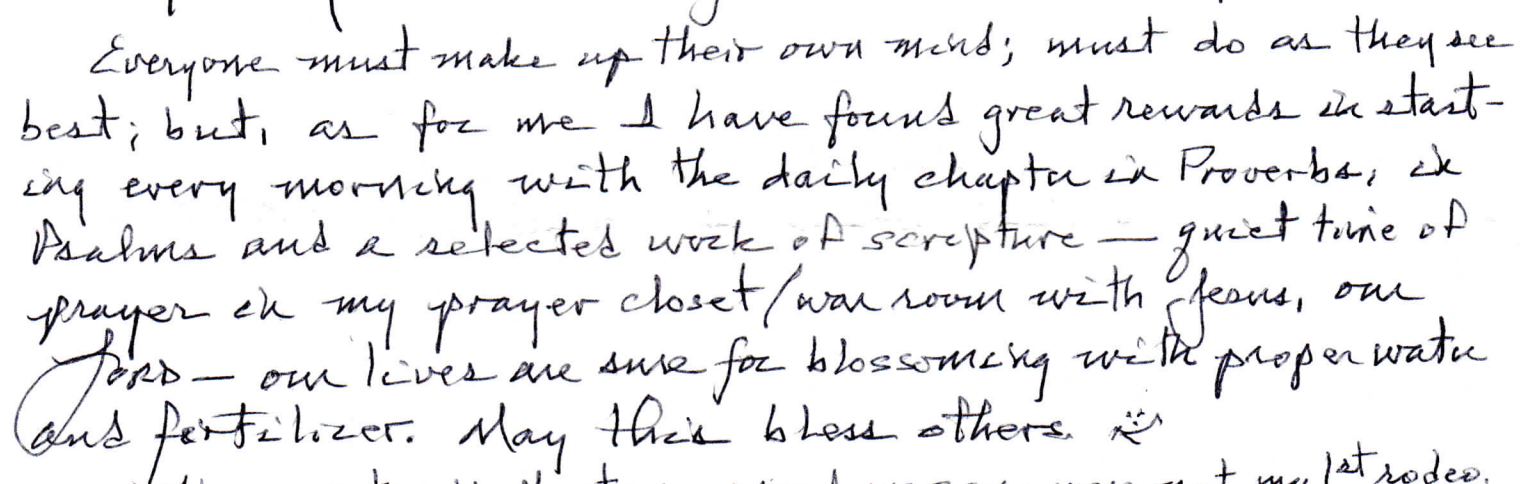 Everyone must make up their own mind; must do as they see
best; but, as for me I have found great rewards in start-
ing every morning with the daily chapter in Proverbs, in
Psalms and a selected work of scripture — quiet time of
prayer in my prayer closet/war room with Jesus, our
LORD — our lives are sure for blossoming with proper water
and fertilizer. May this bless others.
my 1st rodeo.